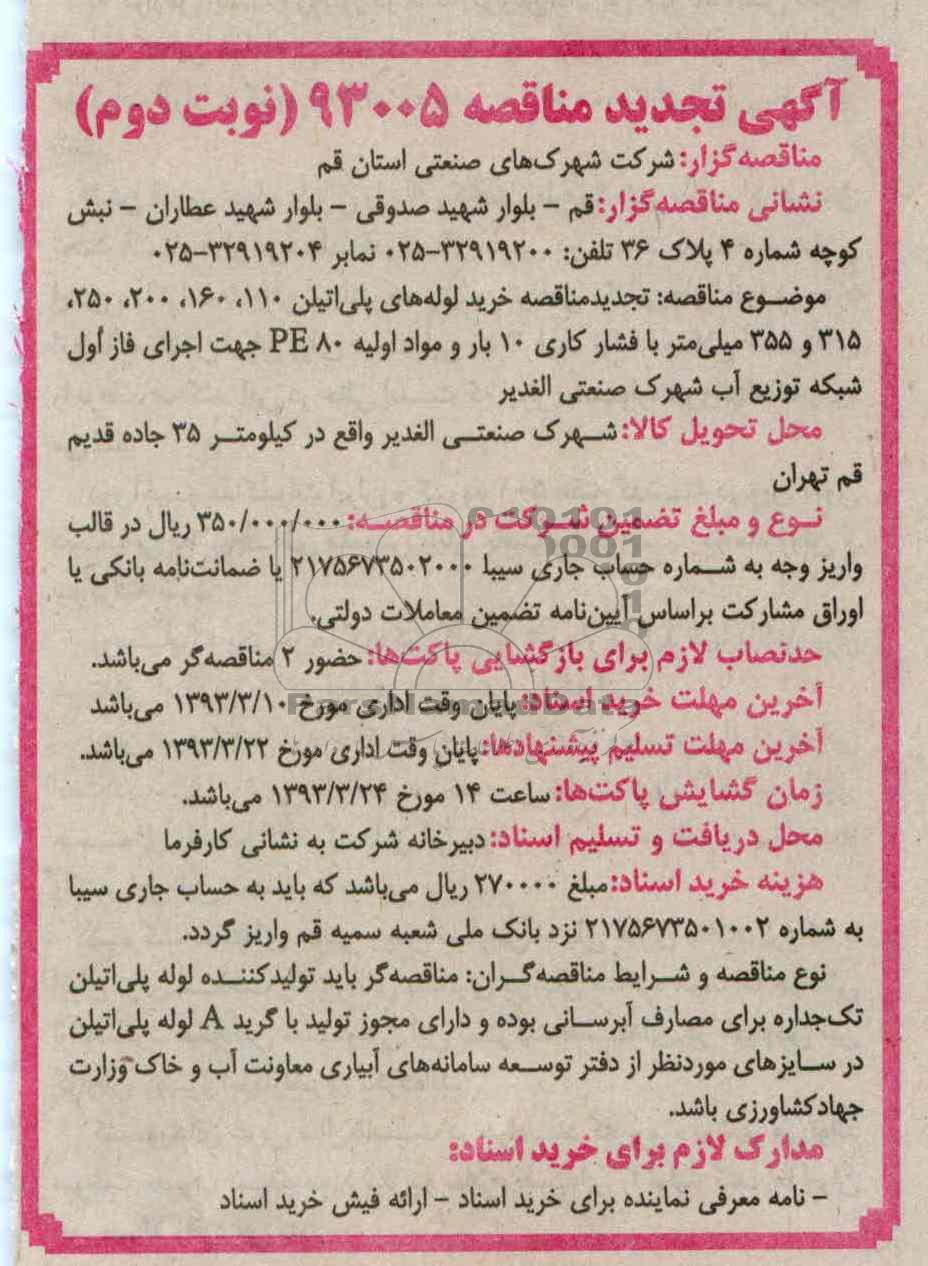 آگهی تجدید مناقصه ۹۳۰۰۵ (نوبت دوم)
مناقصه‌گزار: شرکت شهرک‌های صنعتی استان قم
نشانی مناقصه‌گزار: قم – بلوار شهید صدوقی – بلوار شهید عطاران – نبش
کوچه شماره ۴ پلاک ۳۶ تلفن: ۳۲۹۱۹۲۰۰-۰۲۵ نمابر ۳۲۹۱۹۲۰۴-۰۲۵
موضوع مناقصه: تجدیدمناقصه خرید لوله‌های پلی‌اتیلن ۱۱۰، ۱۶۰، ۲۰۰، ۲۵۰،
۳۱۵ و ۳۵۵ میلی‌متر با فشار کاری ۱۰ بار و مواد اولیه PE ۸۰ جهت اجرای فاز اول
شبکه توزیع آب شهرک صنعتی الغدیر
محل تحویل کالا: شهرک صنعتی الغدیر واقع در کیلومتر ۳۵ جاده قدیم
قم تهران
نوع و مبلغ تضمین شرکت در مناقصه: ۳۵۰/۰۰۰/۰۰۰ ریال در قالب
واریز وجه به شماره حساب جاری سیبا ۲۱۷۵۶۷۳۵۰۲۰۰۰ یا ضمانت‌نامه بانکی یا
اوراق مشارکت براساس آیین‌نامه تضمین معاملات دولتی.
حدنصاب لازم برای بازگشایی پاکت‌ها: حضور ۲ مناقصه‌گر می‌باشد.
آخرین مهلت خرید اسناد: پایان وقت اداری مورخ ۱۳۹۳/۳/۱۰ می‌باشد
آخرین مهلت تسلیم پیشنهادها: پایان وقت اداری مورخ ۱۳۹۳/۳/۲۲ می‌باشد.
زمان گشایش پاکت‌ها: ساعت ۱۴ مورخ ۱۳۹۳/۳/۲۴ می‌باشد.
محل دریافت و تسلیم اسناد: دبیرخانه شرکت به نشانی کارفرما
هزینه خرید اسناد: مبلغ ۲۷۰۰۰۰ ریال می‌باشد که باید به حساب جاری سیبا
به شماره ۲۱۷۵۶۷۳۵۰۱۰۰۲ نزد بانک ملی شعبه سمیه قم واریز گردد.
نوع مناقصه و شرایط مناقصه‌گران: مناقصه‌گر باید تولیدکننده لوله پلی‌اتیلن
تک‌جداره برای مصارف آبرسانی بوده و دارای مجوز تولید با گرید A لوله پلی‌اتیلن
در سایزهای موردنظر از دفتر توسعه سامانه‌های آبیاری معاونت آب و خاک وزارت
جهادکشاورزی باشد.
مدارک لازم برای خرید اسناد:
– نامه معرفی نماینده برای خرید اسناد – ارائه فیش خرید اسناد